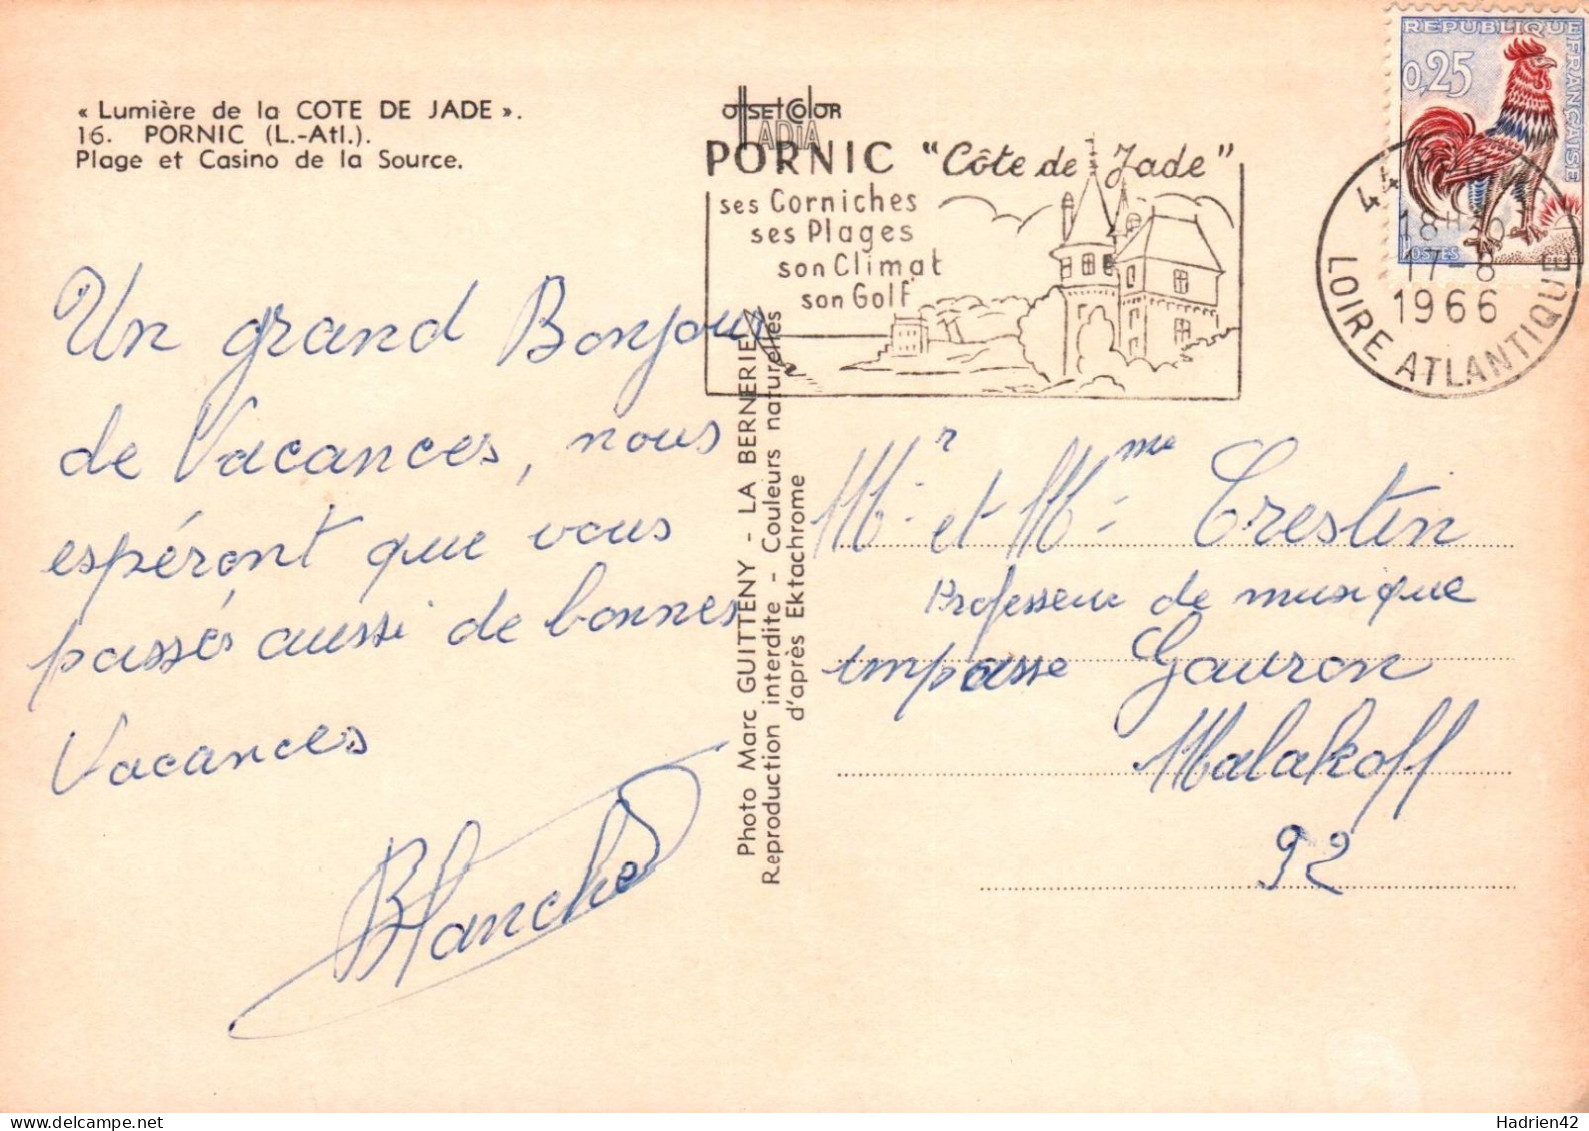 « Lumière de la COTE DE JADE ».
16. PORNIC (L.-Atl.).
Plage et Casino de la Source.
OFFSETCOLOR
IADIA
PORNIC "Côte de Jade"
ses Corniches
ses Plages
son Climat
son Golf
REPUBLIQUE FRANÇAISE
0,25
POSTES
44
18H
17-8
1966
LOIRE ATLANTIQUE
Un grand Bonjour
de Vacances, nous
espéront que vous
passés aussi de bonnes
Vacances
Blanche
Photo Marc GUITTENY - LA BERNERIE
Reproduction interdite - Couleurs naturelles
d'après Ektachrome
Mr et Mme Crestin
Professeur de musique
impasse Gauron
Malakoff
92
Hadrien42